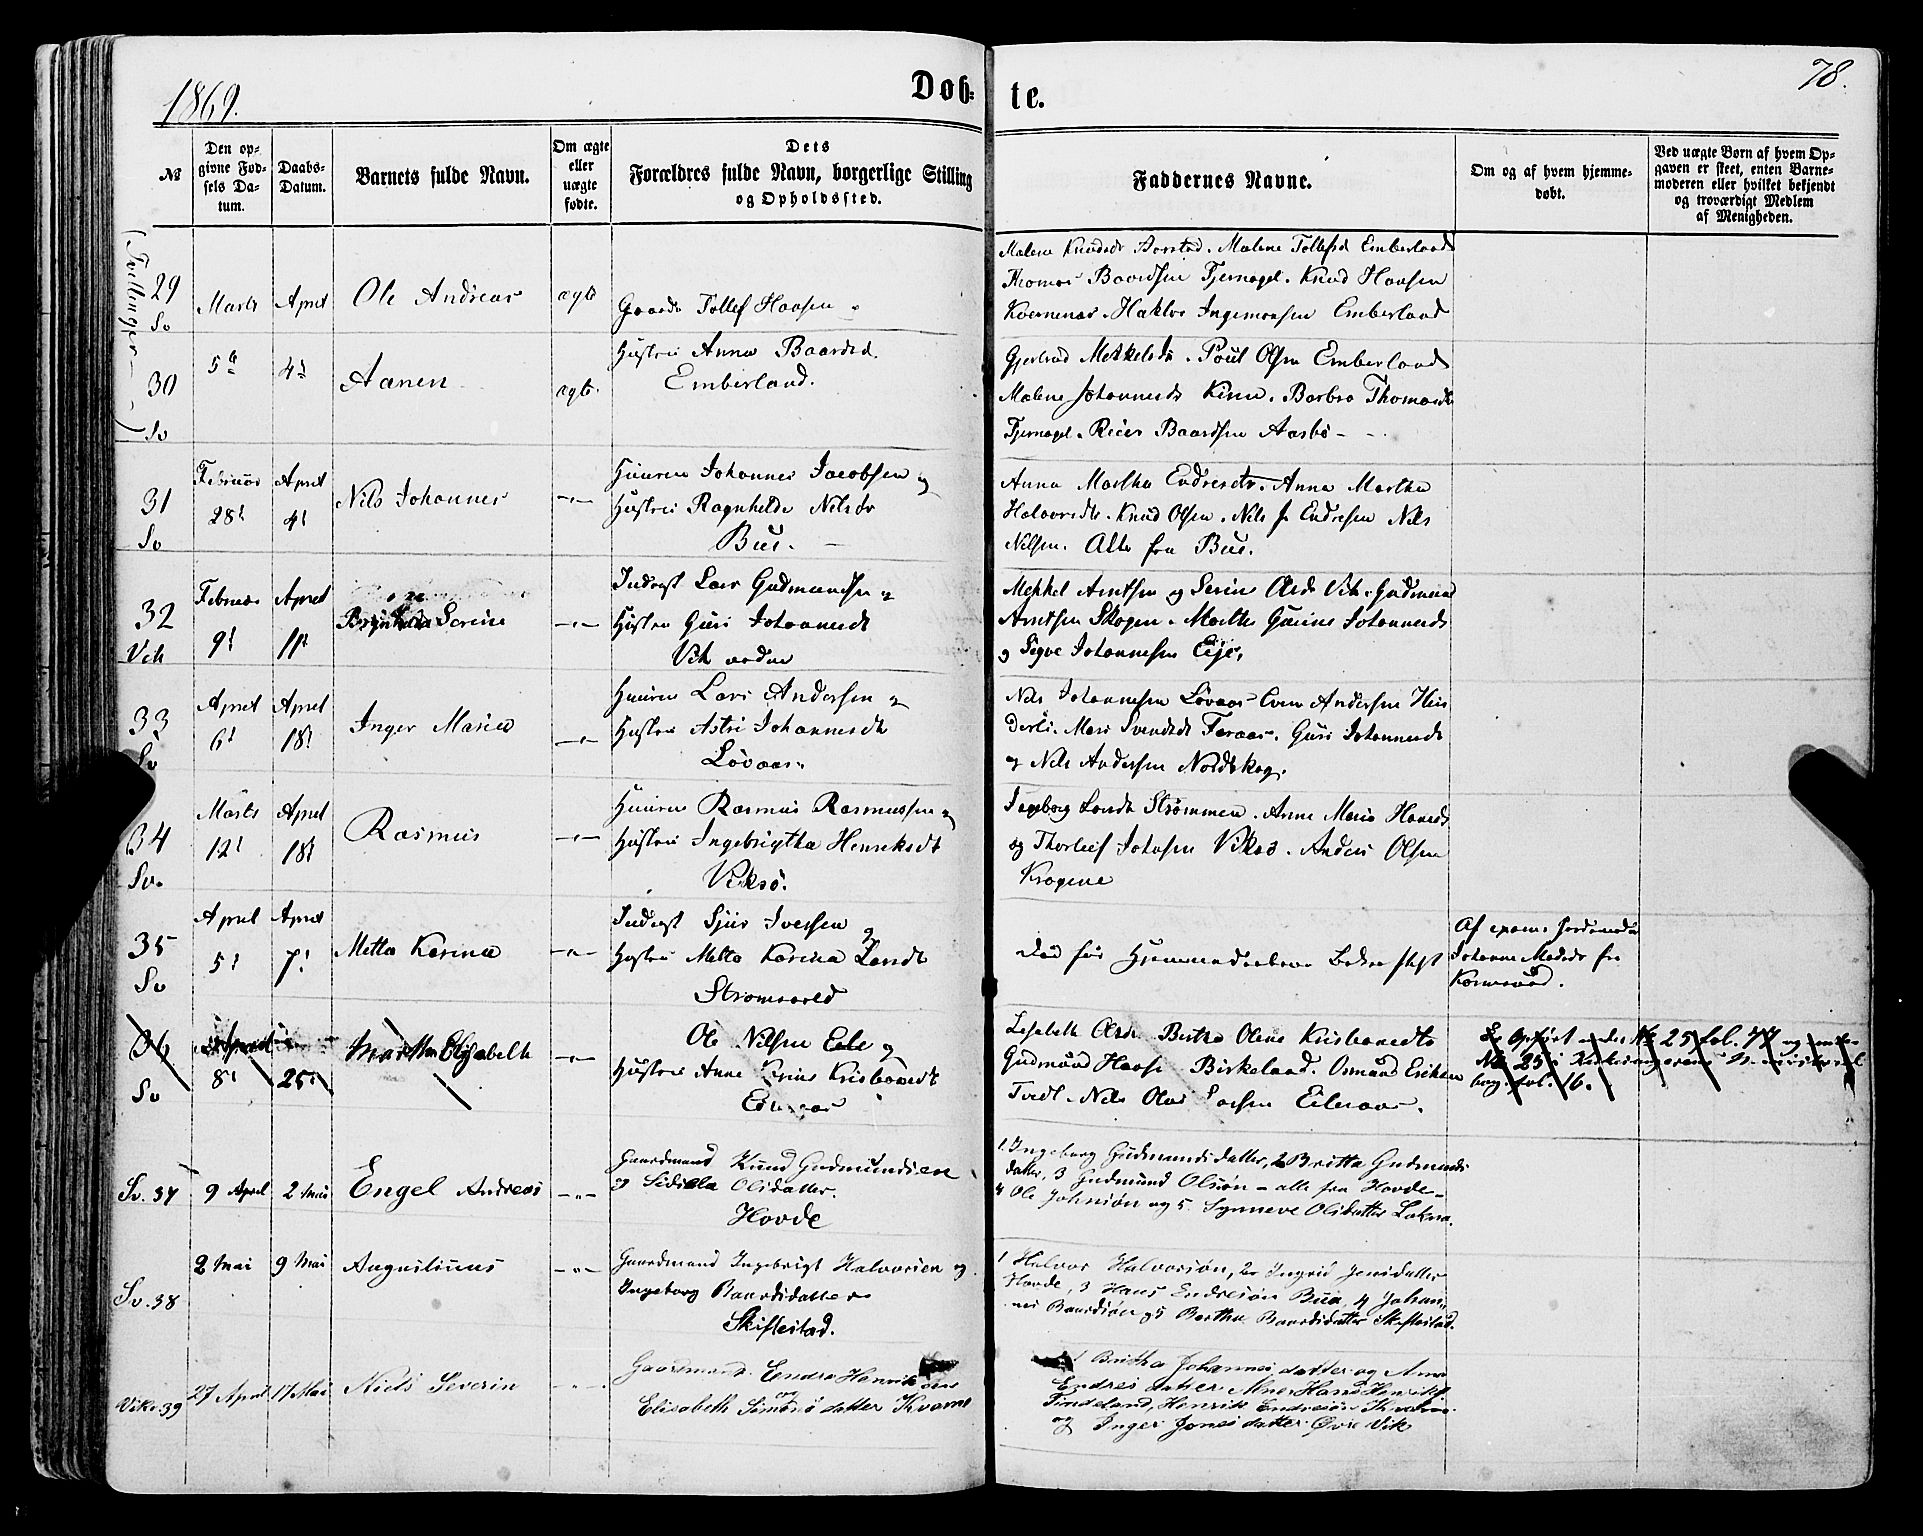 1869.
Døb-
te.
78.
№
Den op-
givne Fød-
sels Da-
tum.
Daabs-
Datum.
Barnets fulde Navn.
Om ægte
eller
uægte
fødte.
Dets
Forældres fulde Navn, borgerlige Stilling
og Opholdssted.
Faddernes Navne.
Om og af hvem hjemme-
døbt.
Ved uægte Børn af hvem Op-
gaven er skeet, enten Barne-
moderen eller hvilket bekjendt
og troværdigt Medlem
af Menigheden.
(Tvillinger)
29
Sv
Marts
5
April
4
Ole Andreas
ægte
Gaardm Tollef Haasen
Hustru Anna Baardsd.
Emberland.
Malene Knudsdt Aarstad. Malene Tollefsd Emberland
Thomas Baardsen Tjernagel. Knud Haasen
Kvernenes. Haktor Ingemansen Emberland
30
Sv
Aanen
ægte.
Gjertrud Mekkelsdt. Poul Olsen Emberland
Malene Johannesdt Kinn. Barbro Thomasdt
Tjernagel. Reier Baardsen Aasbø
31
Sv
Februar
28
April
4
Nils Johannes
Huusm Johannes Jacobsen og
Hustru Ragnhilde Nilsdtr
Bue.
Anna Martha Endresdtr. Anna Martha
Halvorsdt. Knud Olsen. Nils J. Endresen Nils
Nilsen. Alle fra Bue.
32
Vik
Februar
9
April
11
Serine
Inderst Lars Gudmundsen og
Hustru Guri Johannesdt
Vik
Mekkel Arntsen og Serine Olsdt Vik. Gudmund
Arntsen Skogen. Marthe Gurine Johannesdt
og Sigve Johannesen Eije.
33
Sv
April
6
April
18
Inger Maria
Huusm Lars Andersen og
Hustru Astri Johannesdt
Løvaas.
Nils Johannesen Løvaas Even Andersen Hin
derli. Mari Svendsdt Foraas. Guri Johannesdt
og Nils Andersen Nordskog.
34
Sv.
Marts
12
April
18
Rasmus
Huusm Rasmus Rasmussen og
Hustru Ingebrigtha Henriksdt
Viksø.
Ingeborg Larsdt Strømmen. Anne Maria Hansdt
og Thorleif Johnsen Viksø. Anders Olsen
Kragene
35
Sv
April
5
April
7
Metta Karina
Inderst Sjur Iversen og
Hustru Metta Karina Larsdt
Strømsvold
Død før Hjemmedaabens Bekræftelse
Af exam. Jordemoder
Johanne Madsdt fra
36
Sv
April
8
25
Martha Elisabeth
Ole Nilsen Eele og
Hustru Anne Kristensdt
Lisebeth Olsdt. Bertha Olene
Gudmund Haasen Birkeland. Osmund Eriksen
Tvedt. Nils Olai Larsen Eileraas.
Er Opført under No 25 fol. 77 og under
No 25 i
bog fol. 16.
Sv. 37
9 April
2 Mai
Engel Andreas
Gaardmand Knud Gudmundsen
og Sidsela Olsdatter.
Hovde
1 Ingeborg Gudmundsdatter, 2 Britta Gudmunds
datter, 3 Gudmund Olsøn - alle fra Hovde -
4 Ole Johnsøn og 5. Synneve Olsdatter
Sv. 38
2 Mai
9 Mai
Augustinus
Gaardmand Ingebrigt Halvorsen og
Ingeborg Baardsdatter
Skiftestad.
1 Halvor Halvorsøn, 2 Ingrid Jensdatter
Hovde, 3 Hans Endresøn Bua, 4 Johan-
nes Baardsøn og 5 Bertha Baardsdatter Skiftestad.
Vikø 39
27 April
17 Mai
Niels Severin
Gaardmand Endre Henriksøn
og
Elisabeth Simonsdatter Kvame
Britha Johannesdatter og Anna
Endresdatter Hans Henriksøn
Tindeland, Henrik Endresøn Kvame
og Inger Jonesdatter Øvre Vik